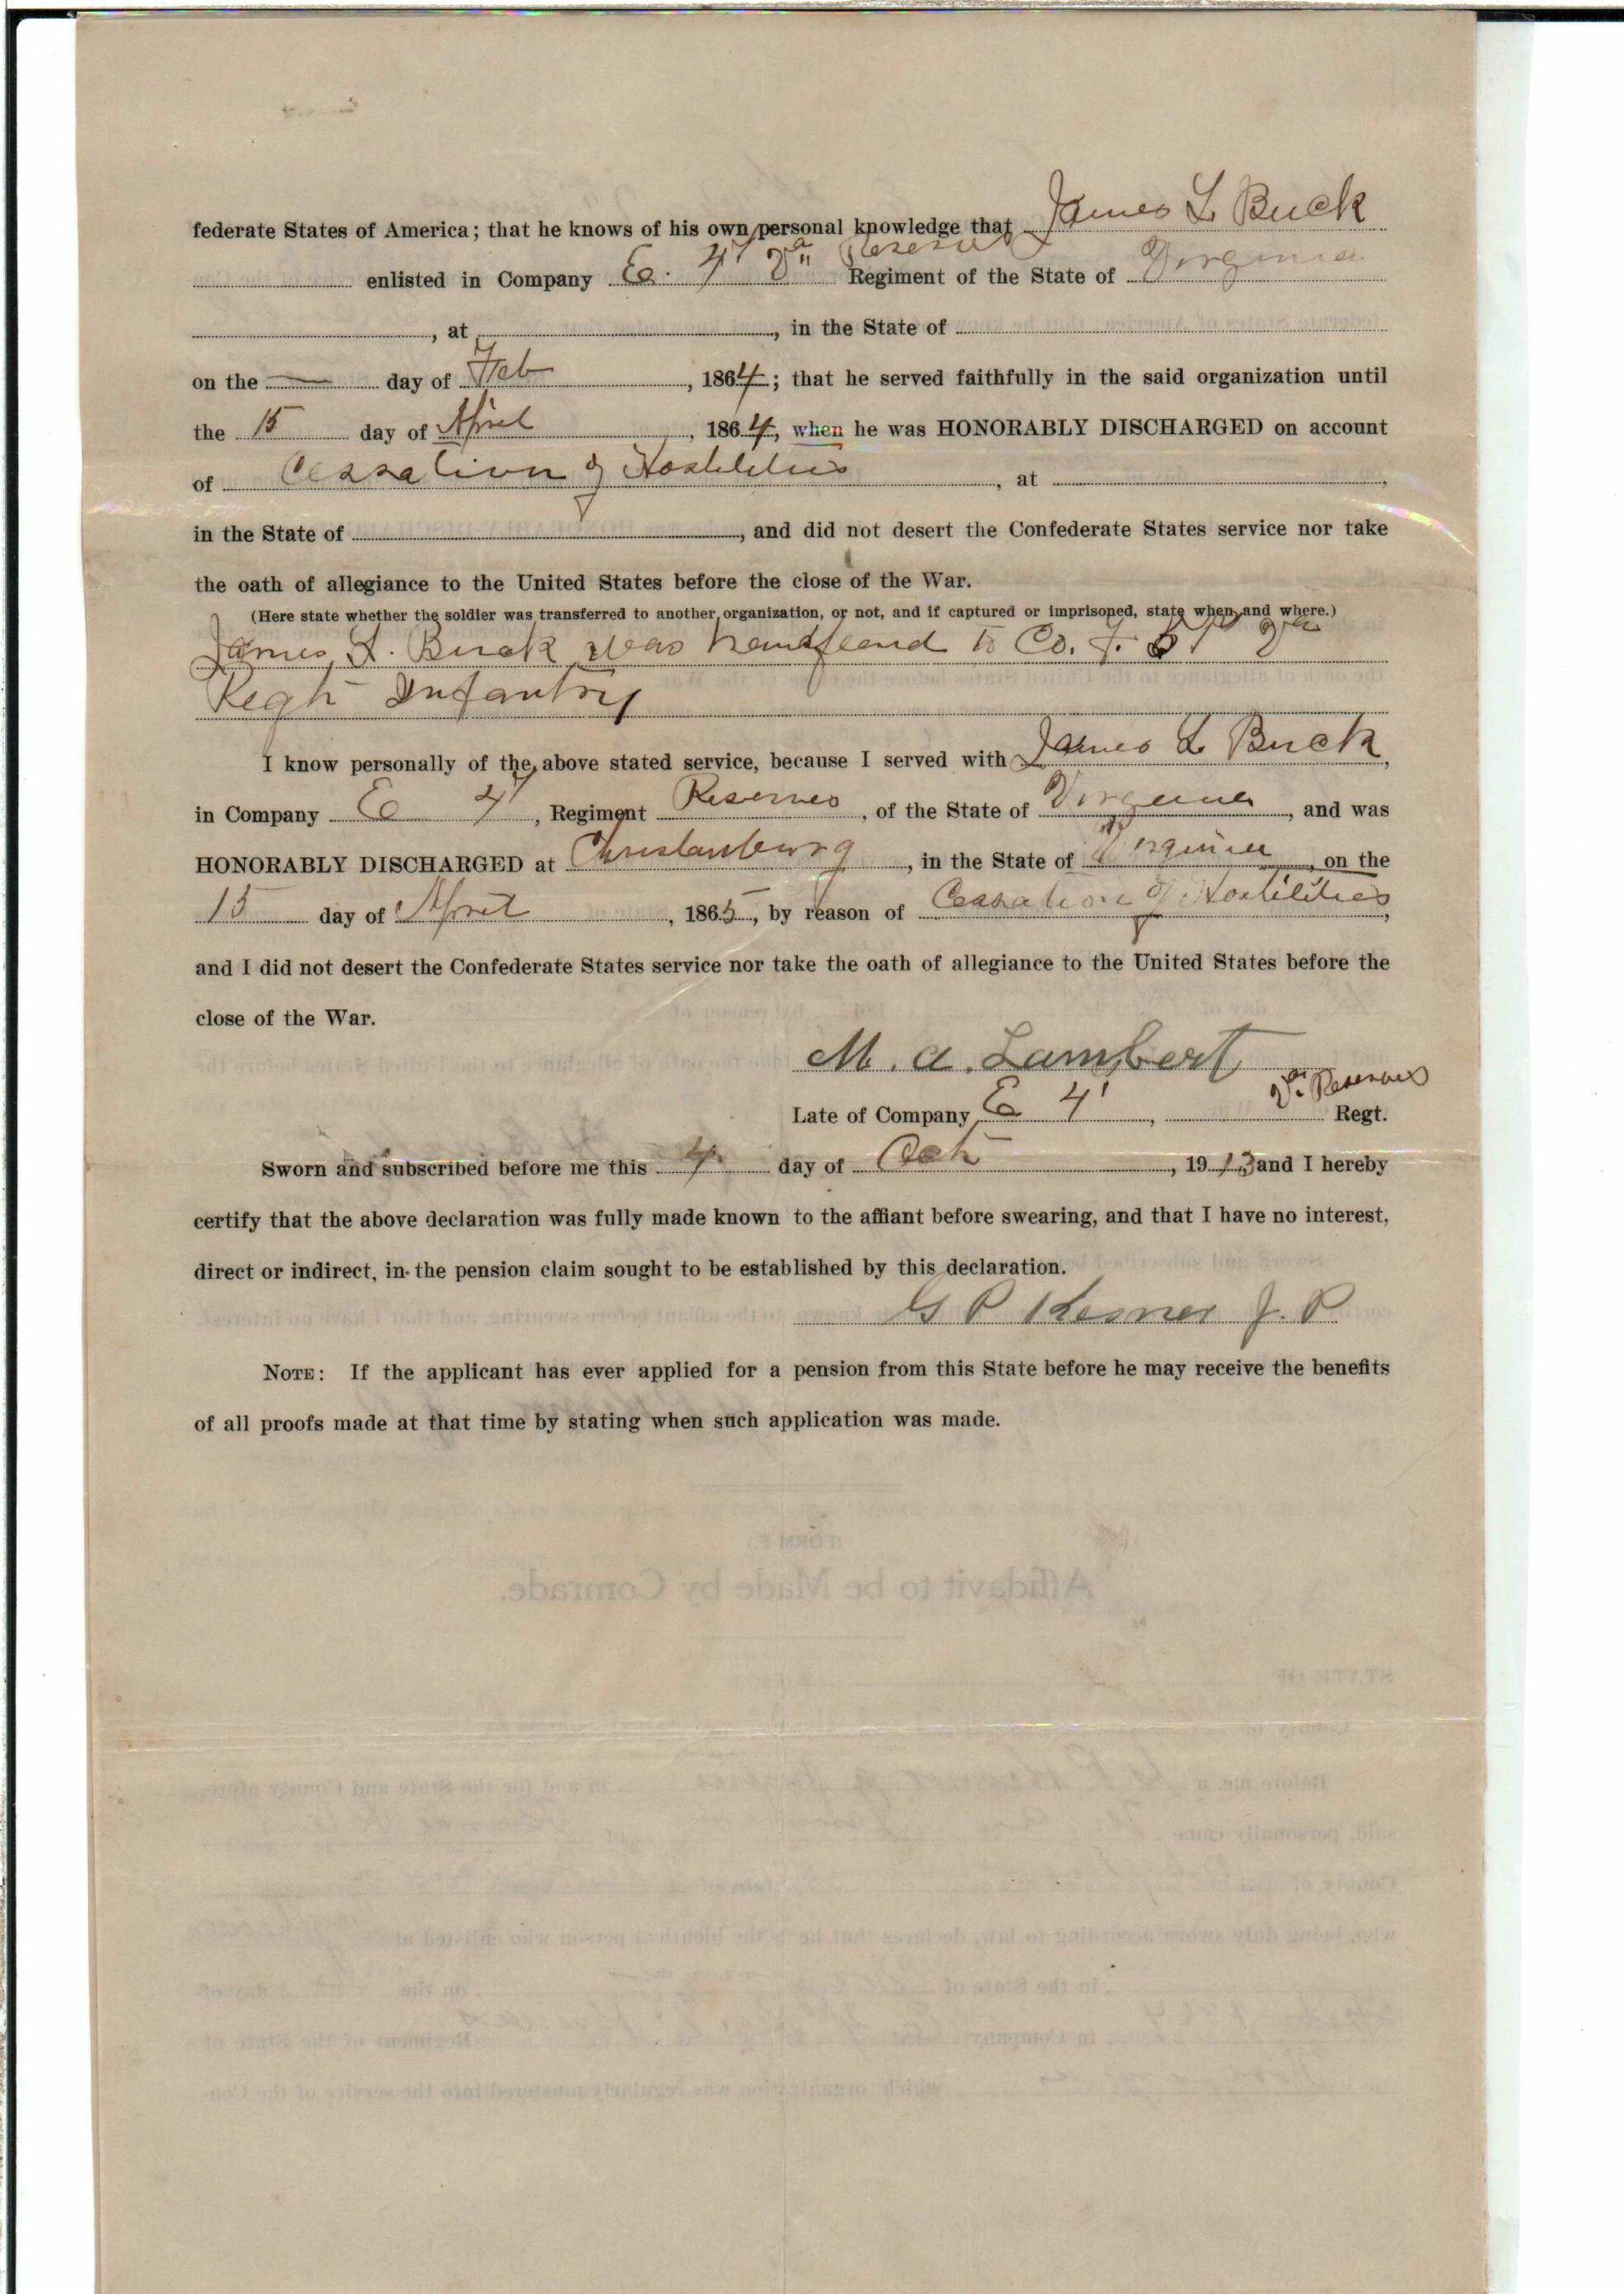 federate States of America; that he knows of his own personal knowledge that James L Buck
enlisted in Company E. 4' Va Reserves Regiment of the State of Virginia
, at , in the State of
on the — day of Feb , 1864; that he served faithfully in the said organization until
the 15 day of April , 1864, when he was HONORABLY DISCHARGED on account
of Cessation of Hostilities , at ,
in the State of , and did not desert the Confederate States service nor take
the oath of allegiance to the United States before the close of the War.
(Here state whether the soldier was transferred to another organization, or not, and if captured or imprisoned, state when and where.)
James L. Buck was transferred to Co. F. Va
Regt Infantry
I know personally of the above stated service, because I served with James L Buck,
in Company E 4', Regiment Reserves, of the State of Virginia, and was
HONORABLY DISCHARGED at Christansburg, in the State of Virginia, on the
15 day of April , 1865, by reason of Cessation of Hostilities,
and I did not desert the Confederate States service nor take the oath of allegiance to the United States before the
close of the War.
M. A. Lambert
Late of Company E 4', Va Reserves Regt.
Sworn and subscribed before me this 4 day of Oct , 1913 and I hereby
certify that the above declaration was fully made known to the affiant before swearing, and that I have no interest,
direct or indirect, in the pension claim sought to be established by this declaration.
G P Kesner J. P
NOTE: If the applicant has ever applied for a pension from this State before he may receive the benefits
of all proofs made at that time by stating when such application was made.